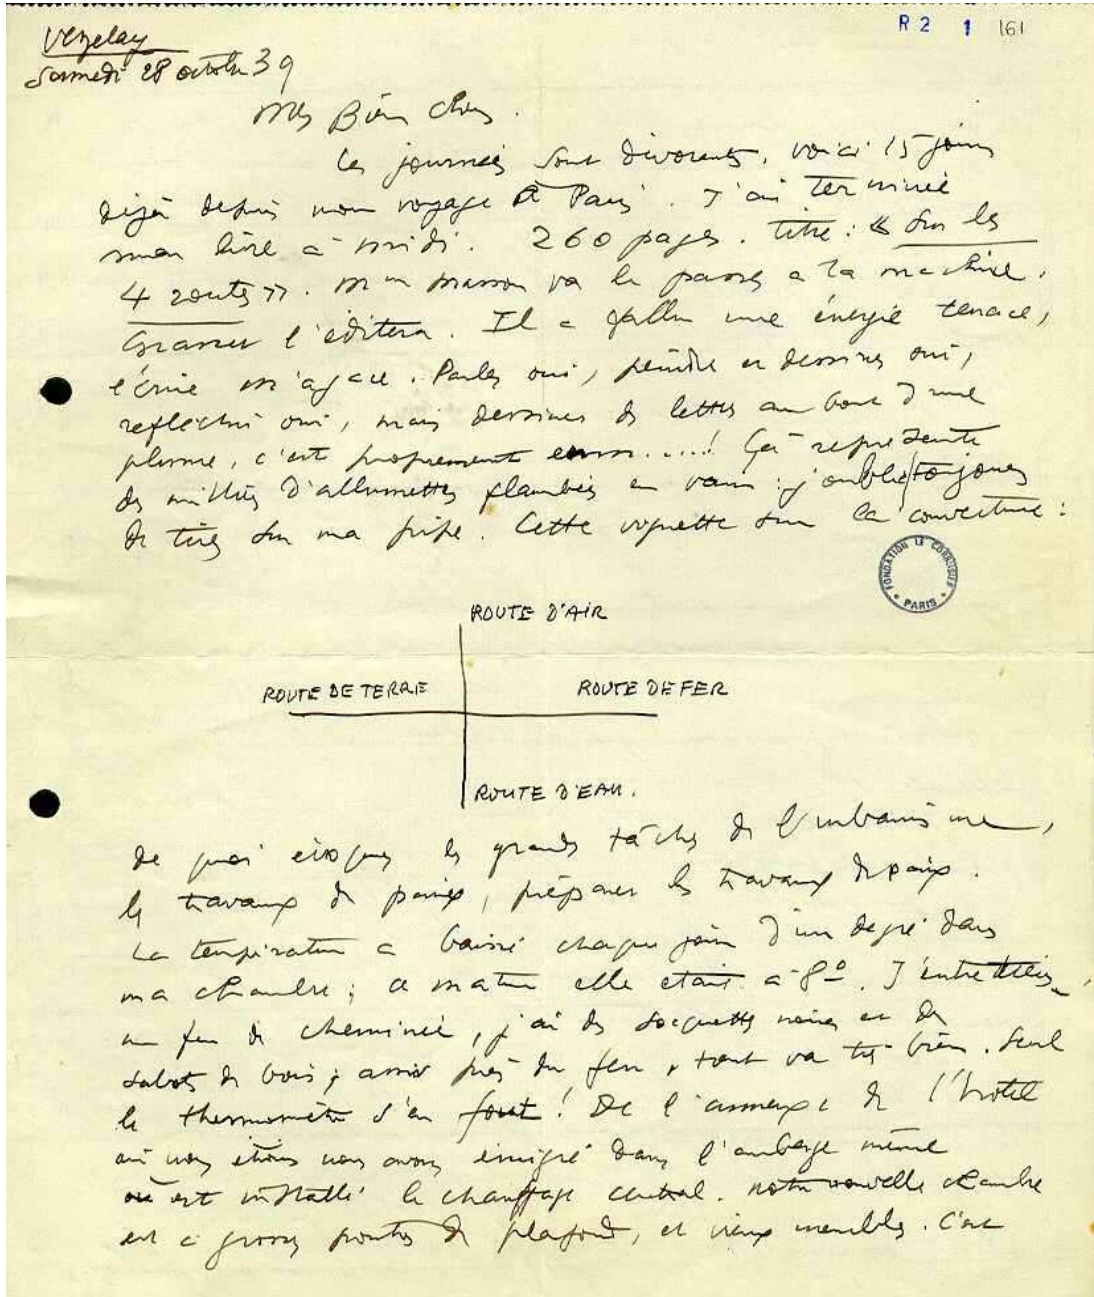 R 2 1 161
Vézelay
Samedi 28 octobre 39
Mes Bien chers.
Les journées sont dévorantes. voici 15 jours
déjà depuis mon voyage à Paris. J'ai terminé
mon livre à midi. 260 pages. titre : « Sur les
4 routes ». va le passer à la machine.
Grasset l'éditera. Il a fallu une énergie tenace,
écrire m'agace. Parler oui, peindre et dessiner oui,
réfléchir oui, mais dessiner des lettres au bout d'une
plume, c'est proprement emm....! Ça représente
des milliers d'allumettes flambées en vain : j'oublie toujours
de tirer sur ma pipe. Cette vignette sur la couverture :
FONDATION LE CORBUSIER
PARIS
ROUTE D'AIR
ROUTE DE TERRE ROUTE DE FER
ROUTE D'EAU.
de quoi évoquer les grandes tâches de l'urbanisme,
les travaux de paix, préparer les travaux de paix.
La température a baissé chaque jour d'un degré dans
ma chambre ; ce matin elle était à 8°. J'entretiens
un feu de cheminée, j'ai des socquettes noires et des
sabots de bois ; assis près du feu, tout va très bien. Seul
le thermomètre s'en fout ! De l'annexe de l'hôtel
où nous étions nous avons émigré dans l'auberge même
où est installé le chauffage central. notre nouvelle chambre
est à grosses poutres de plafond, et vieux meubles. C'est